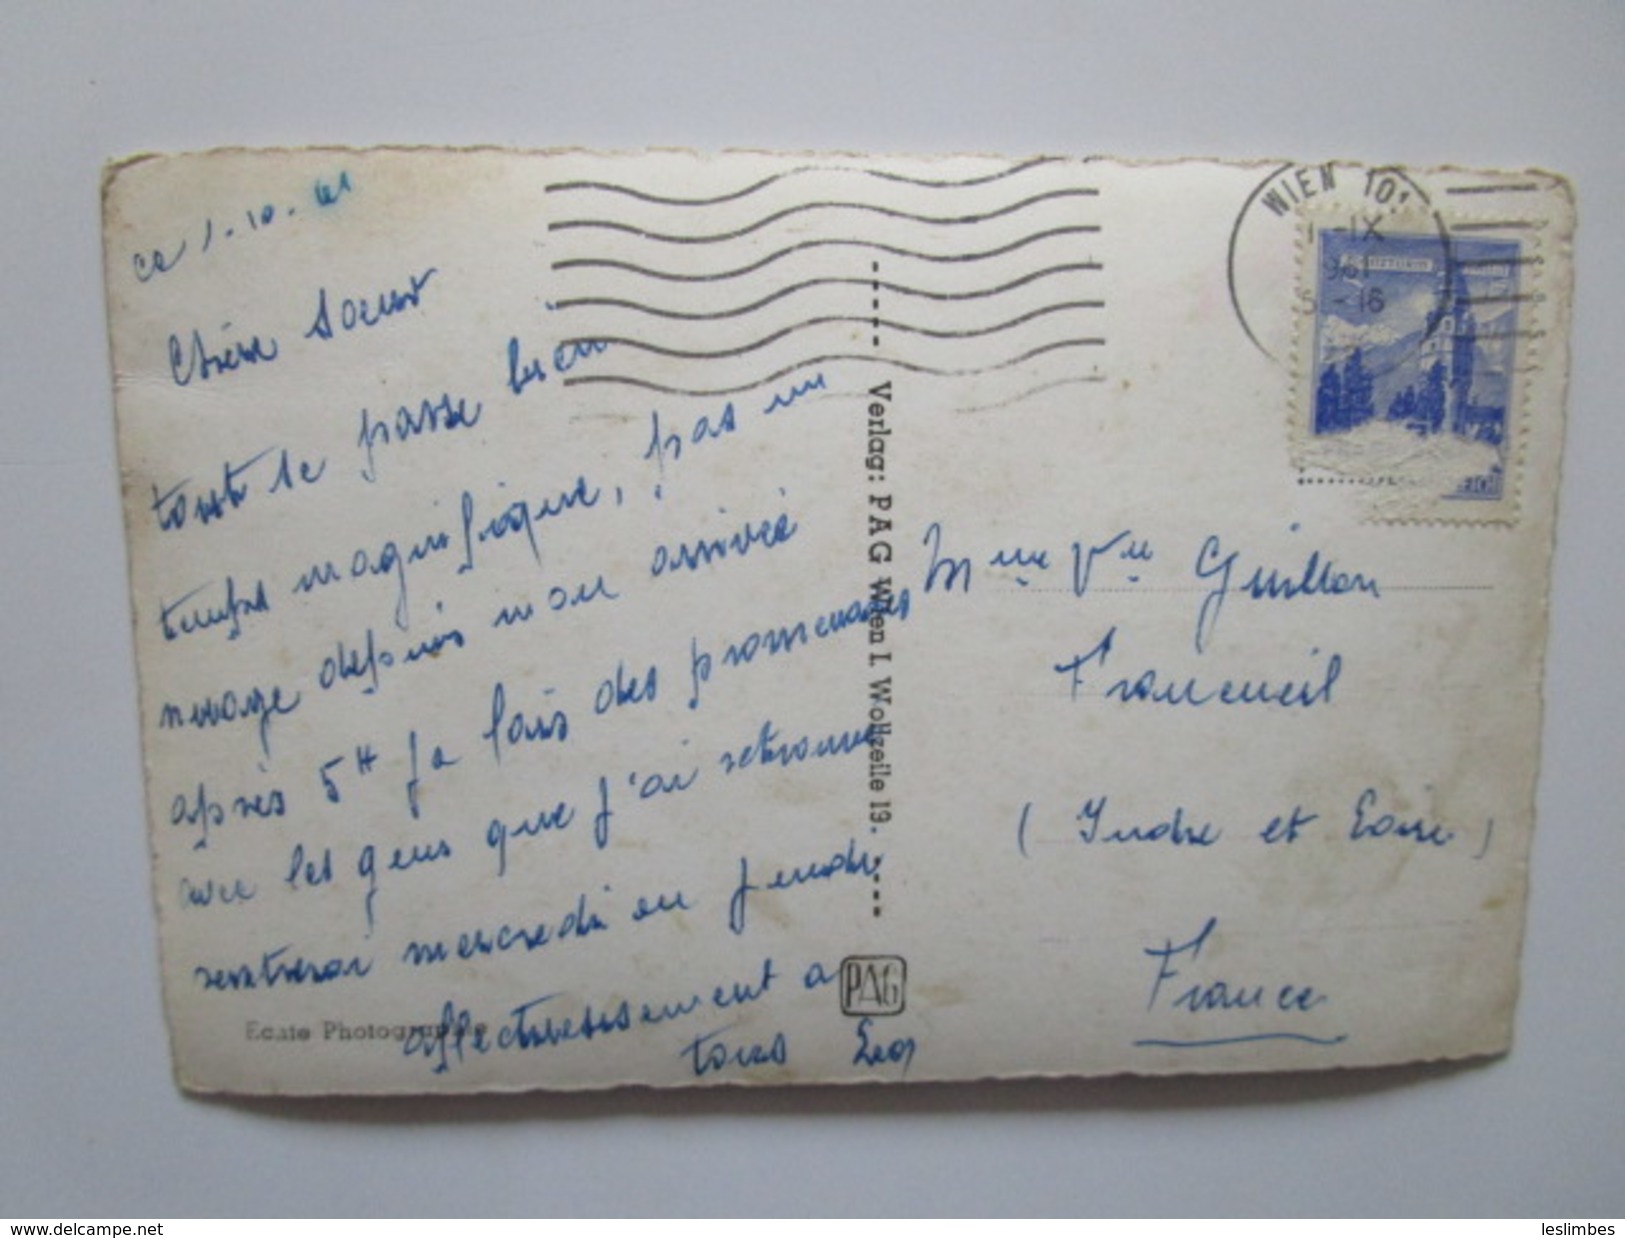 ce 1-10-61
Chère Soeur
tout se passe bien
temps magnifique, pas un
nuage depuis mon arrivée
après 5H je fais des promenades
avec les gens que j'ai retrouvé
rentrerai mercredi ou jeudi
affectueusement a
tous
Echte Photographie
Verlag: PAG Wien I. Wollzeile 19.
PAG
WIEN 101
-IX
961
-16
Mme Vve Guillon
Francueil
(Indre et Loire)
France
www.delcampe.net
leslimbes